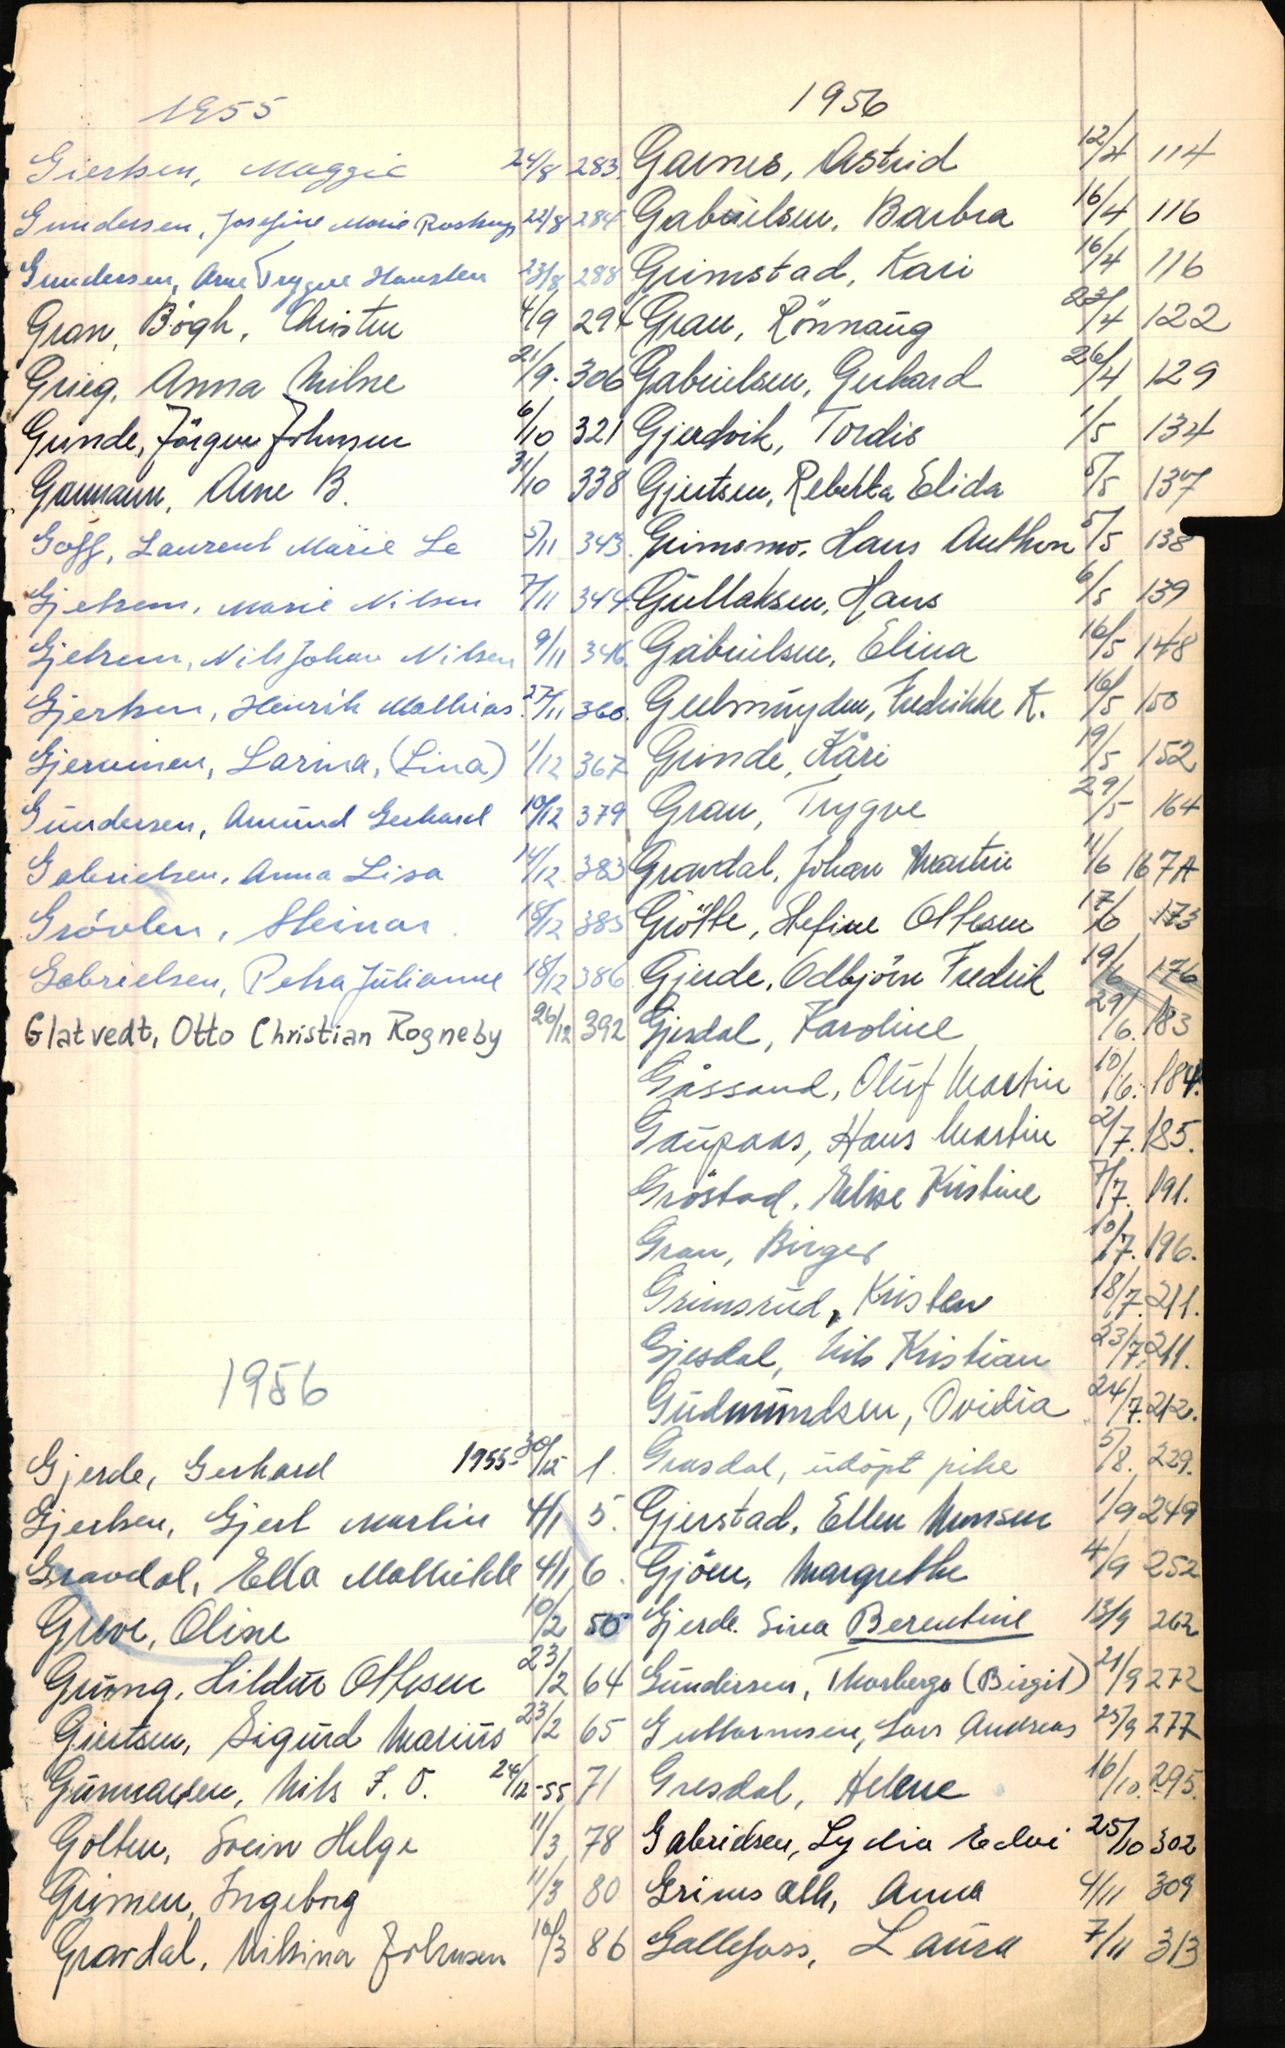 1955
Giertsen, Maggie 24/8 283.
Gundersen, Josefine Marie 22/8 284
Gundersen, Arne Trygve Hansten 23/8 288
Gran, Bögh, Christen 4/9 294
Grieg, Anna Milne 21/9. 306
Grinde, Jörgen Johnsen 6/10 321
Garmann, Arne B. 31/10 338
Goff, Laurent Marie Le 5/11 343.
Gjelsem, Marie Nilsen 7/11 344
Gjelsem, Nils Johan Nilsen 9/11 346
Gjertsen, Henrik Mathias 27/11 360.
Gjervinen, Larina, (Lina) 1/12 367
Gundersen, Amund Gerhard 10/12 379
Gabrielsen, Anna Lisa 14/12 383
Grövlen, Steinar. 18/12 385
Gabrielsen, Petra Julianne 18/12 386
Glatvedt, Otto Christian Rogneby 26/12 392
1956
Gjerde, Gerhard 1955- 30/12 1.
Gjertsen, Gjert Martin 4/1 5.
Gravdal, Ella Mathilde 4/1 6.
Greve, Oline 10/2 50
Grung, Hildur Ottesen 23/2 64
Gjertsen, Sigurd Marius 23/2 65
Gunnarsen, Nils J. O. 24/12-55 71
Golten, Svein Helge 11/3 78
Grimen, Ingeborg 11/3 80
Gravdal, Nilsina Johnsen 16/3 86
1956
Garnes, Astrid 12/4 114
Gabrielsen, Barbra 16/4 116
Grimstad, Kari 16/4 116
Grau, Rönnaug 23/4 122
Gabrielsen, Gerhard 26/4 129
Gjerdvik, Tordis 1/5 134
Gjertsen, Rebekka Elida 5/5 137
Grimsmo, Hans Anthon 5/5 138
Gullaksen, Hans 6/5 139
Gabrielsen, Elina 16/5 148
Geelmuyden, Fredrikke K. 16/5 150
Grinde, Kåri 19/5 152
Grau, Trygve 29/5 164
Gravdal, Johan Martin 11/6 167A
Grötte, Stefine Ottesen 17/6 173
Gjerde, Odbjörn Fredrik 19/6 176
Gjesdal, Karoline 29/6. 183
Gåssand, Oluf Martin 10/6. 184.
Gaupaas, Hans Martin 2/7. 185.
Gröstad, Elise Kristine 7/7. 191.
Gran, Birger 10/7. 196.
Grimsrud, Kristen 18/7. 211.
Gjesdal, Nils Kristian 23/7. 211.
Gudmundsen, Ovidia 24/7. 212.
Grasdal, udöpt pike 5/8. 229.
Gjerstad, Ellen Monsen 1/9 249
Gjöen, Margrethe 4/9 252
Gjerde Sina Berentine 13/9 262
Gundersen, Thorberga (Birgit) 21/9 272
Guttormsen, Lars Andreas 25/9 277
Gresdal, Helene 16/10. 295.
Gabrielsen, Lydia Edvi 25/10 302
Grimsath, Anna 4/11 309
Gallefoss, Laura 7/11 313